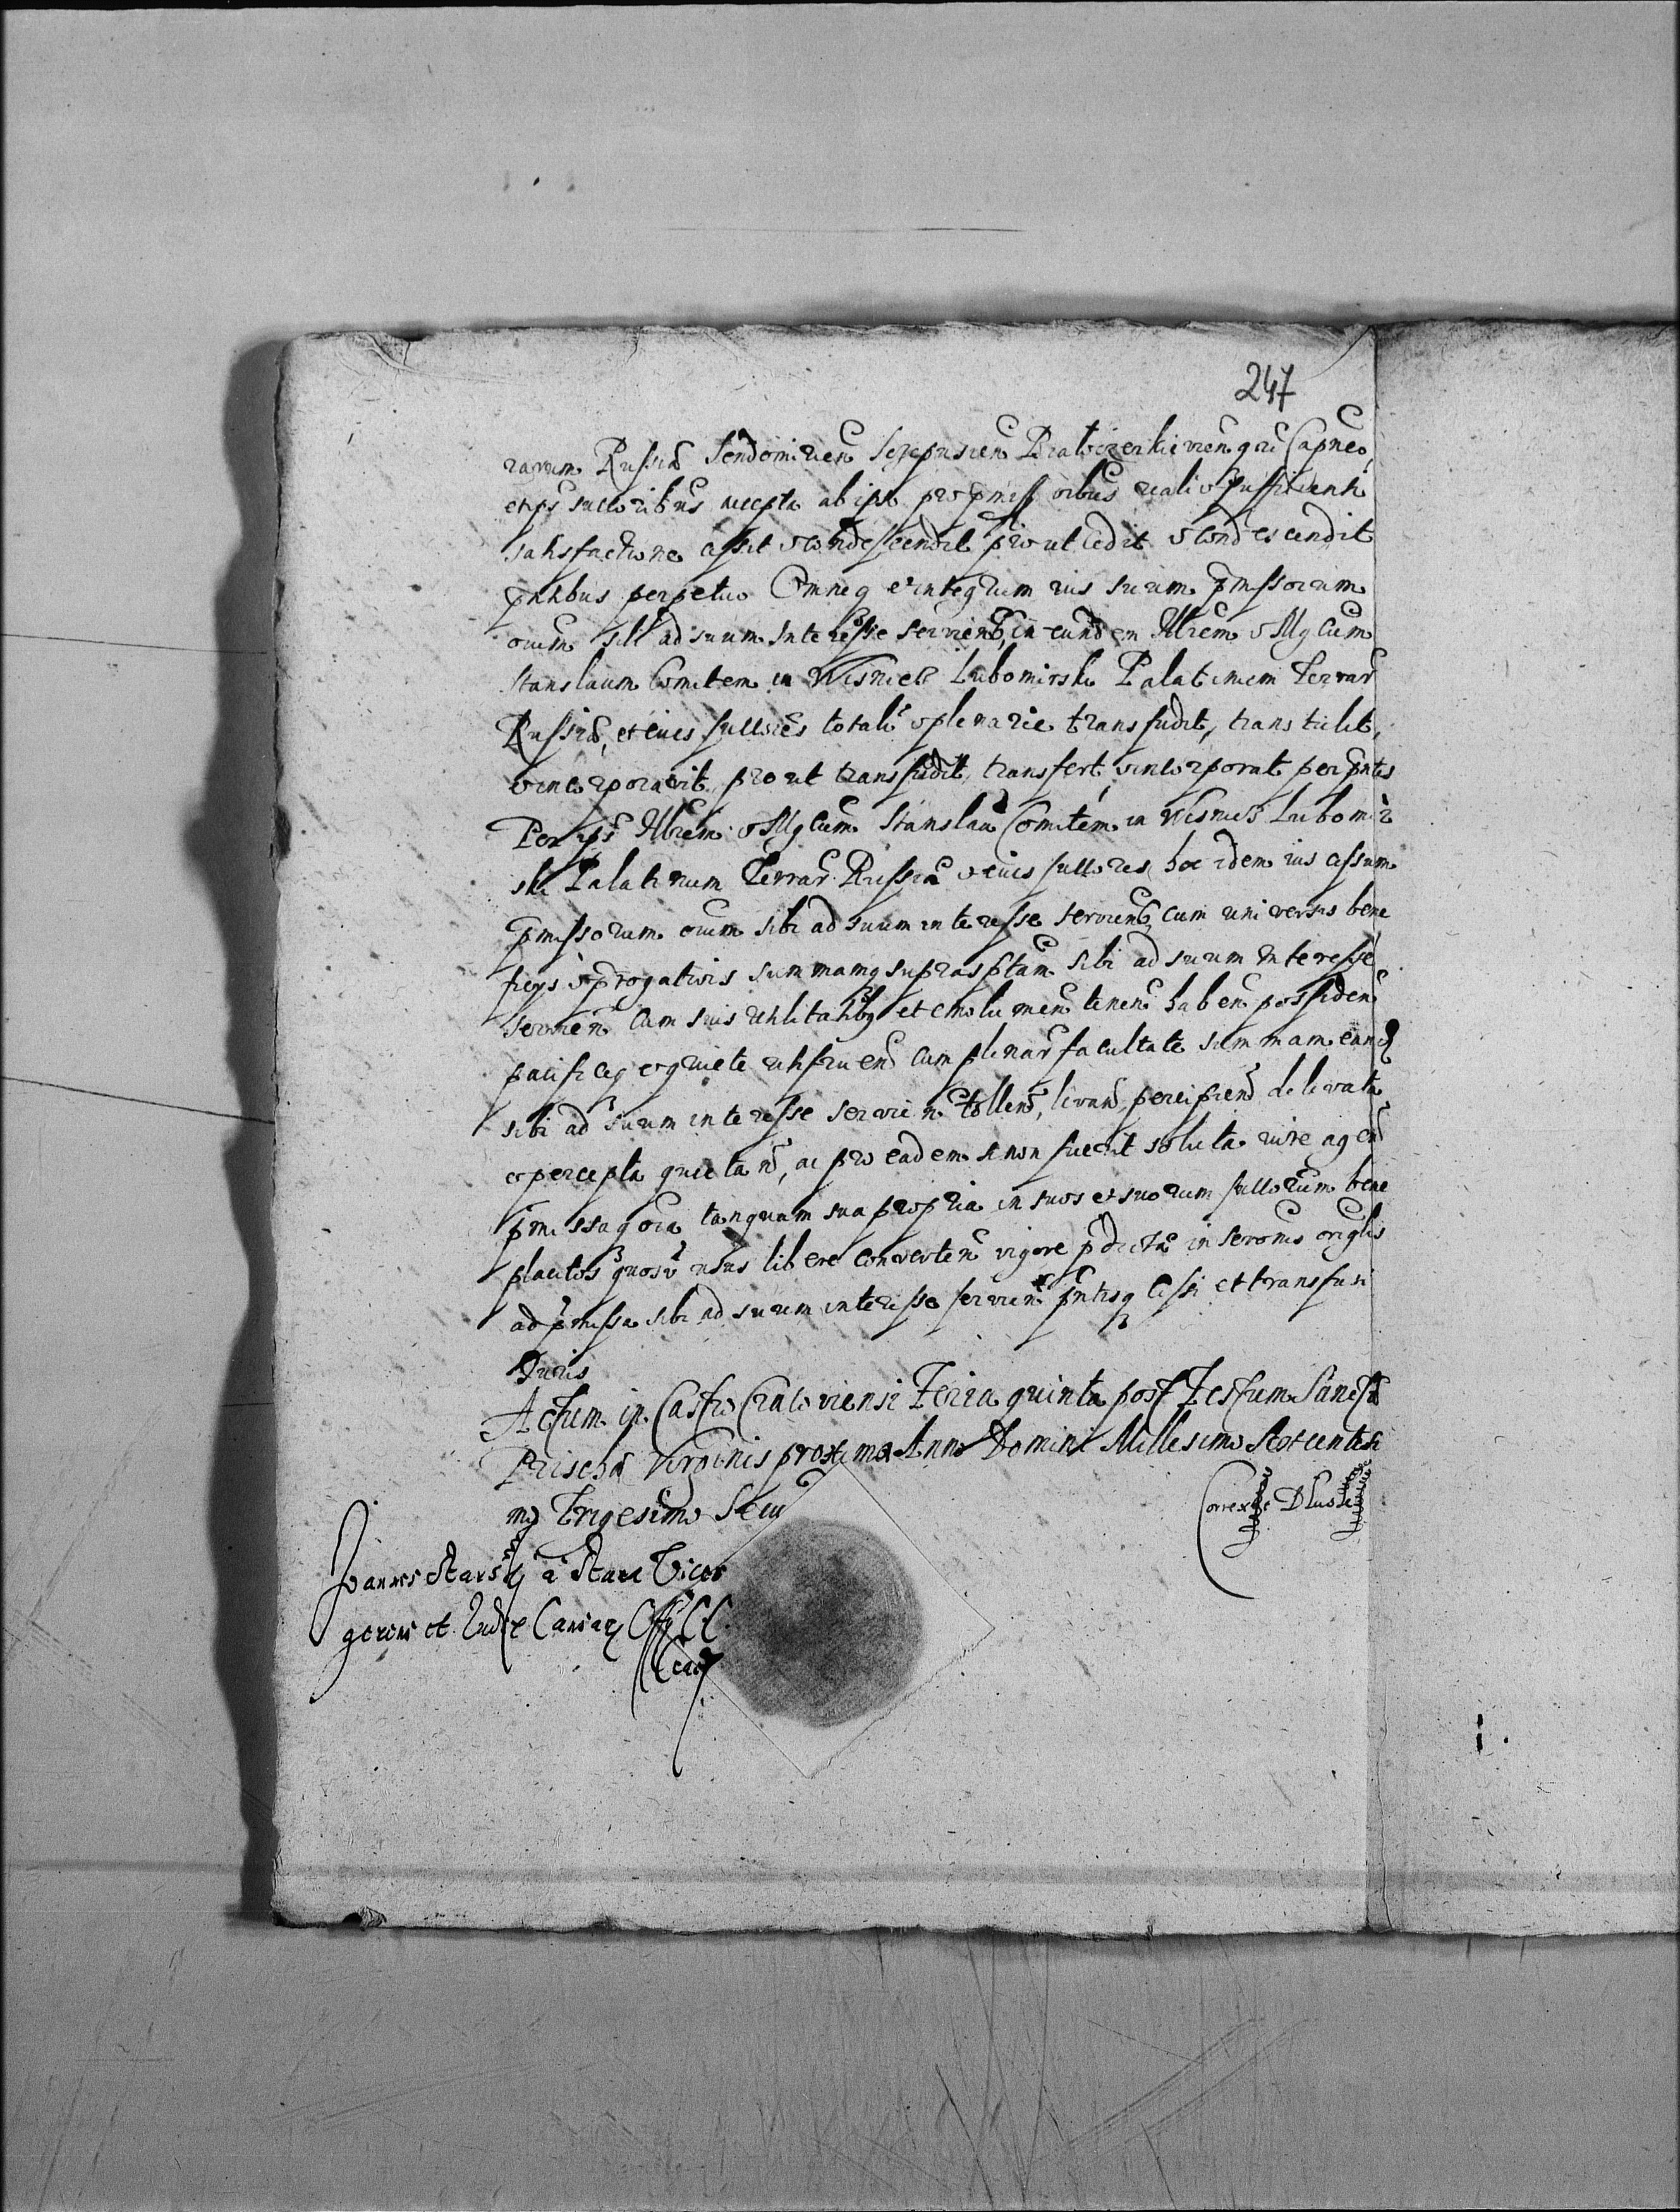 247
rarum Russiæ Sendomirien Scepusien Bialocerkievien qȝ Capneo,
eiusqȝ succoribus accepta ab ipso pro pmiss oibus reali & sufficienti
satisfactione cessit & condescendit prout cedit & condescendit
pntibus perpetuo Omneqȝ et integrum ius suum pmissorum
oium sibi ad suum Interesse servienS, in eundem Illrem & Mgcum
Stanslaum Comitem in Wisnicz Lubomirski Palatinum Terrar
Russiæ, et eius succores totalr & plenarie transfudit, transtulit,
& incorporavit prout transfudit, transfert, & incorporat per pntes
Per ips Illrem & Mgcum Stanslaū Comitem in Wisnicz Lubomir
ski Palatinum Terrar Russiæ & eius succores, hoc idem ius cessum
pmissorum oium sibi ad suum interesse servienS, cum universis bene
ficys & prrogativis summamqȝ suprasptam sibi ad suum Interesse
servien cum suis utilitatibȝ et emolumen tenen haben possiden
pacificeqȝ & quiete utifruen cum plenar facultate summam eandē
sibi ad suum interesse servien tollend, levand, percipiend de levata
& percepta quietand, ac pro eadem si non fuerit soluta iure agend
pmissaqȝ oia tanquam sua propria in suos et suorum succorum bene
placitos quosv usus libere converten vigore pdictæ inscronis origlis
ad pmissa sibi ad suum interesse servien pntisqȝ cessi et transfusi
Iuris
Actum in Castro Cracoviensi Feria quinta post Festum Sanctæ
Priscæ Virginis proxima Anno Domini Millesimo Sexcentesi
mo Trigesimo Secu
Correxit Dluski
Joannes Starsky à Stara Vices
gerens et Iudex Causarȝ Offy CC.